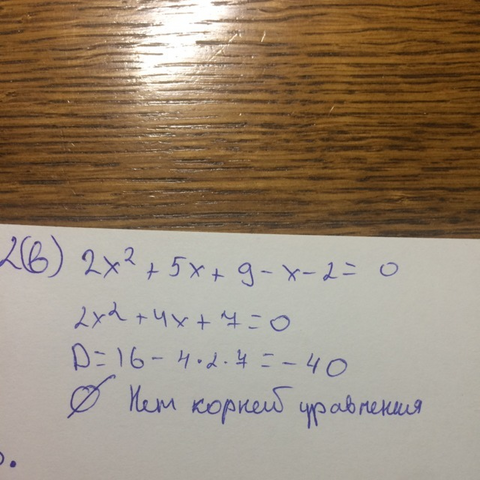 2(в) 2x² + 5x + 9 - x - 2 = 0
2x² + 4x + 7 = 0
D = 16 - 4·2·7 = -40
∅ Нет корней уравнения